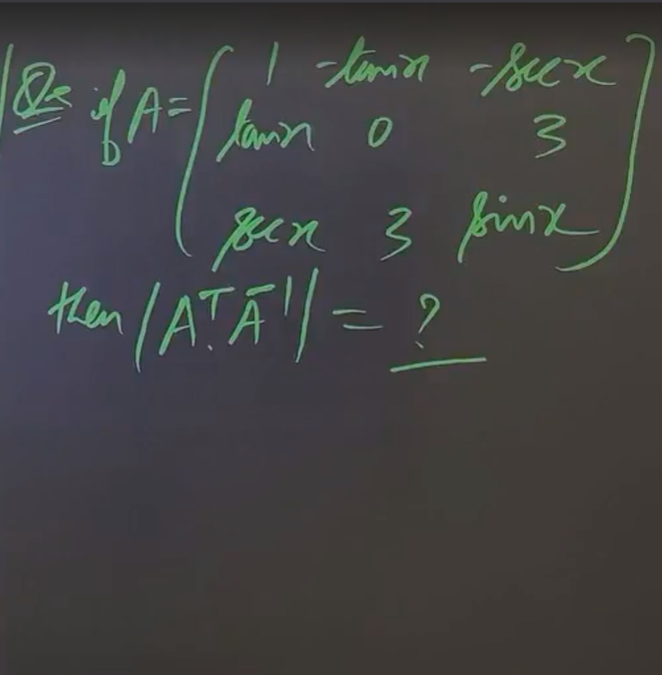 Q: if A = [ 1 -tanx -secx
tanx 0 3
secx 3 sinx ]
then |A^T A^-1| = ?